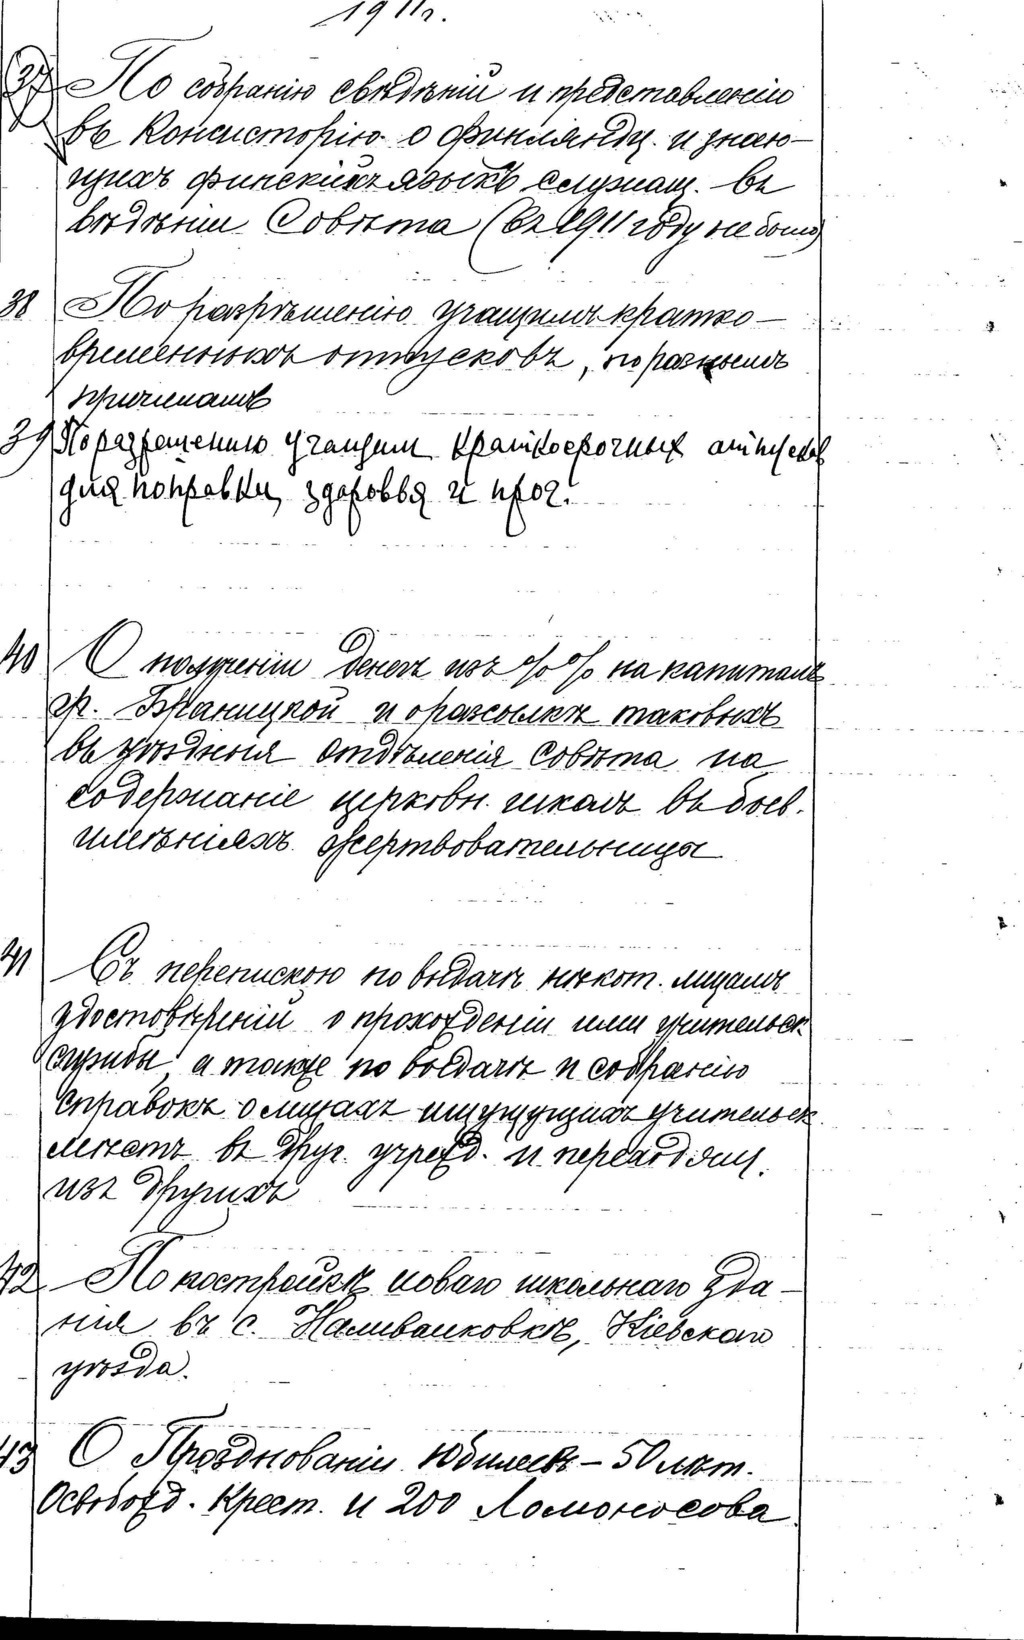 1911г.
37 По собранію свѣдѣній и представленію
въ Консисторію о финлянд. и знаю-
щихъ финскій языкъ служащ. въ
вѣдѣніи Совѣта (въ 1911 году не было)
38 По разрѣшенію учащимъ кратко-
временныхъ отпусковъ, по разнымъ
причинамъ
39 По разрешению учащим краткосрочных отпусков
для поправки здоровья и проч.
40 О полученіи денегъ изъ %% на капиталъ
гр. Браницкой и о разсылкѣ таковыхъ
въ уѣздныя Отдѣленія Совѣта на
содержаніе церковн. школъ въ бывш.
имѣніяхъ жертвовательницы
41 Съ перепискою по выдачѣ нѣкот. лицамъ
удостовѣреній о прохожденіи ими учительск
службы, а также по выдачѣ и собранію
справокъ о лицахъ ищущихъ учительск.
мѣстъ въ друг. учрежд. и переходящ.
изъ другихъ
42 По постройкѣ новаго школьнаго зда-
нія въ с. Наливайковкѣ, Кіевскаго
уѣзда.
43 О Празднованіи юбилеевъ - 50 лѣт.
Освобожд. Крест. и 200 Ломоносова